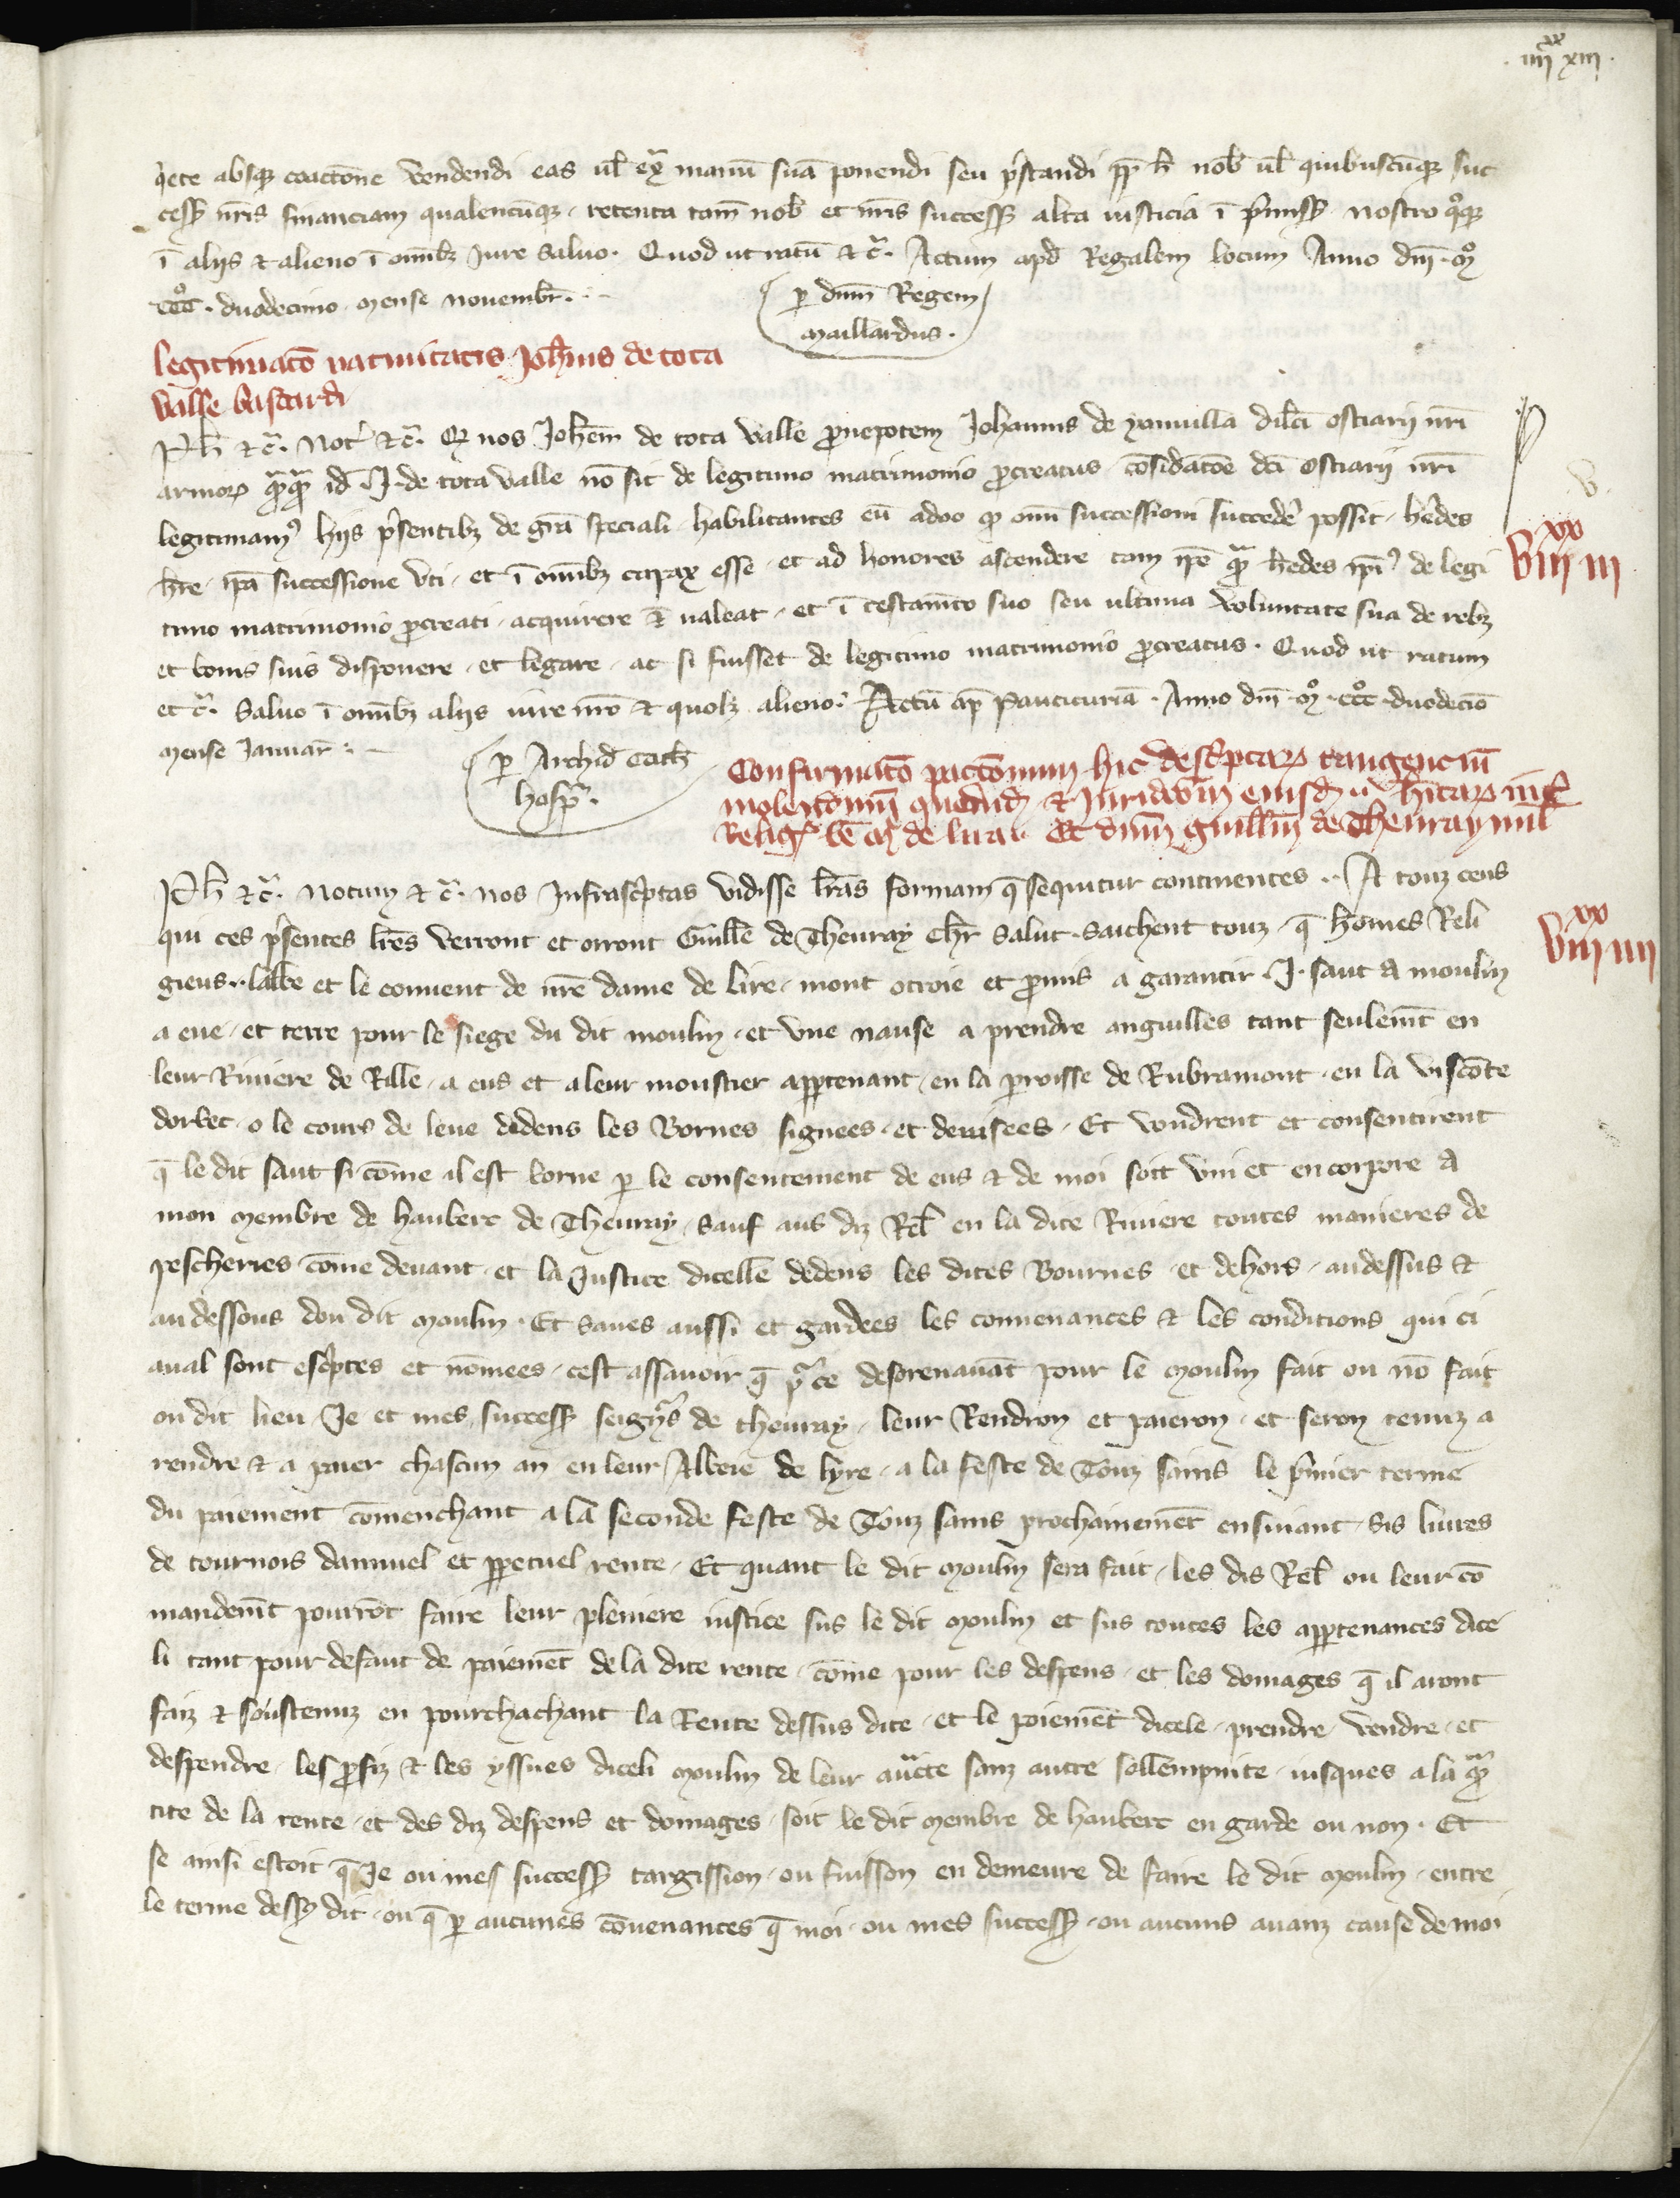 . iiii^xx xiii .
q̉ete absq̃ coactõne vendendi eas ul̃ ex^a manũ suã ponendi seu p̃standi ꝓp̃ h̃ nob̃ ul̃ quibuscũq̃ suc
cess̃ nr̃is financiam qualencũq̃ . retenta tam̃ nob̃ et nr̃is success̃ alta iusticia ĩ p̃miss̃ . nostro q̊q̃
ĩ aliis et alieno ĩ om̃ibȝ iure saluo . Quod ut ratũ et c̃ . Actum apd̃ Regalem locum Anno dñi . m̊
ccc̊ . duodecimo . mense nouembr̃ .
ꝑ dñm Regem
maillardus .
legitimatõ natiuitatis Joh̃nis de tota
valle bastardi
Ph̃ et c̃ . Not̃ et c̃ . Qꝛ nos Joh̃em de tota valle ꝓnepotem Johannis de yanuilla dil̃ci ostiarii nr̃i
armoꝝ q^amq^am id̃ . J . de tota valle nõ sit de legitimo matrimonio ꝓcreatus . cõsid̃atõe dc̃i ostiarii nr̃i
legitimam⁹ hiis p̃sentibȝ de gr̃a speciali . habilitantes eũ adeo q̃ om̃i successioni succed̃e possit . h̃edes
h̃re . ip̃a successione vti . et ĩ om̃ibȝ capax esse . et ad honores ascendere tam ip̃e q^am h̃edes ip̃i⁹ de legi
timo matrimonio ꝓcreati . acquirere et̃ ualeat . et ĩ testam̃to suo seu ultima voluntate sua de rebȝ
et bonis suis disponere . et legare . ac si fuisset de legitimo matrimonio ꝓcreatus . Quod ut ratum
et c̃ . saluo ĩ om̃ibȝ aliis iure nr̃o et quolȝ alieno . Actũ ap̃ Pauticuriã . Anno dñi . m̊ . ccc̊ . duodecĩo
mense Januar̃ .
ꝑ Archid̃ cath̃
hosp̃ .
viii^xx iii
Confirmatõ pactõnum hic desc̃ptaꝝ tangenciũ
molendinũ quoddã et iuridic̃m eiusd̃ h̃itaꝝ int̃
Relig̃ de lira et dñm guill̃m de Theuray mil̃
Ph̃ et c̃ . Notum et c̃ . nos infrasc̃ptas vidisse l̃ras formam q̃ sequitur continentes .. A touz ceus
qui ces p̃sentes l̃res verront et orront Guill̃e de Theuray ch̃r salut . Saichent touz . q̃ hõmes Reli
gieus .. labbe et le conuent de nr̃e dame de lire . mont otroie et ꝓmis a garantir . J . saut a moulin
a eue . et terre pour le siege du dit moulin . et vne nause a prendre anguilles tant seulem̃t en
leur Riuiere de Rille . a eus et a leur moustier apꝑtenant . en la ꝑroisse de Rubramont . en la viscõte
dorbec . o le cours de leue dedens les Bornes signees . et deuisees . Et voudrent et consentirent
q̃ le dit saut si cõme il est borne ꝑ le consentement de eus et de moi soit vni et encorpore a
mon membre de haubert de Theuray . sauf aus diz Rel̃ en la dite Riuiere toutes manieres de
pescheries cõme deuant . et la Justice dicelle dedens les dites Bournes . et dehors . au dessus et
au dessous dou dit moulin . Et saues aussi et gardees les conuenances et les conditions qui ci
aual sont esc̃ptes et nõmees . cest assauoir q̃ p^r ce desorenauãt pour le moulin fait ou nõ fait
ou dit lieu Je et mes success̃ seign̾s de theuray . leur Rendron et paieron . et seron tenuz a
rendre et a paier chascun an en leur Abbeie de lyre . a la feste de Touz sains le p̃mier terme
du paiement cõmenchant a la seconde feste de Touz sains prochainemẽt ensiuant . sis liures
de tournois dannuel et ꝑpetuel rente . Et quant le dit moulin sera fait . les dis Rel̃ ou leur cõ
mandem̃t pourrõt faire leur pleniere iustice sus le dit moulin et sus toutes les apꝑtenances dice
li tant pour defaut de paiemẽt de la dite rente . cõme pour les despens . et les domages q̃ il aront
faiz et soustenuz en pourchachant la Rente dessus dite . et le poiemẽt dicele . prendre vendre . et
despendre . les ꝓfiz et les yssues diceli moulin de leur auc̃te sanz autre sollempnite . iusques a la q^an
tite de la rente . et des diz despens et domages . soit le dit membre de haubert en garde ou non . Et
se ainsi estoit q̃ Je ou mes success̃ targission . ou fuisson en demeure de faire le dit moulin . entre
le terme dess⁹ dit . ou q̃ ꝑ aucunes cõuenances q̃ moi . ou mes success̃ . ou aucuns auanz cause de moi
viii^xx iiii